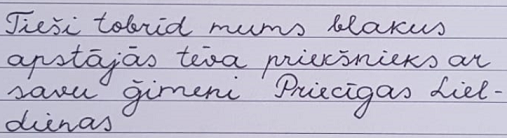 Tieši tobrīd mums blakus
apstājās tēva priekšnieks ar
savu ģimeni Priecīgas Liel-
dienas